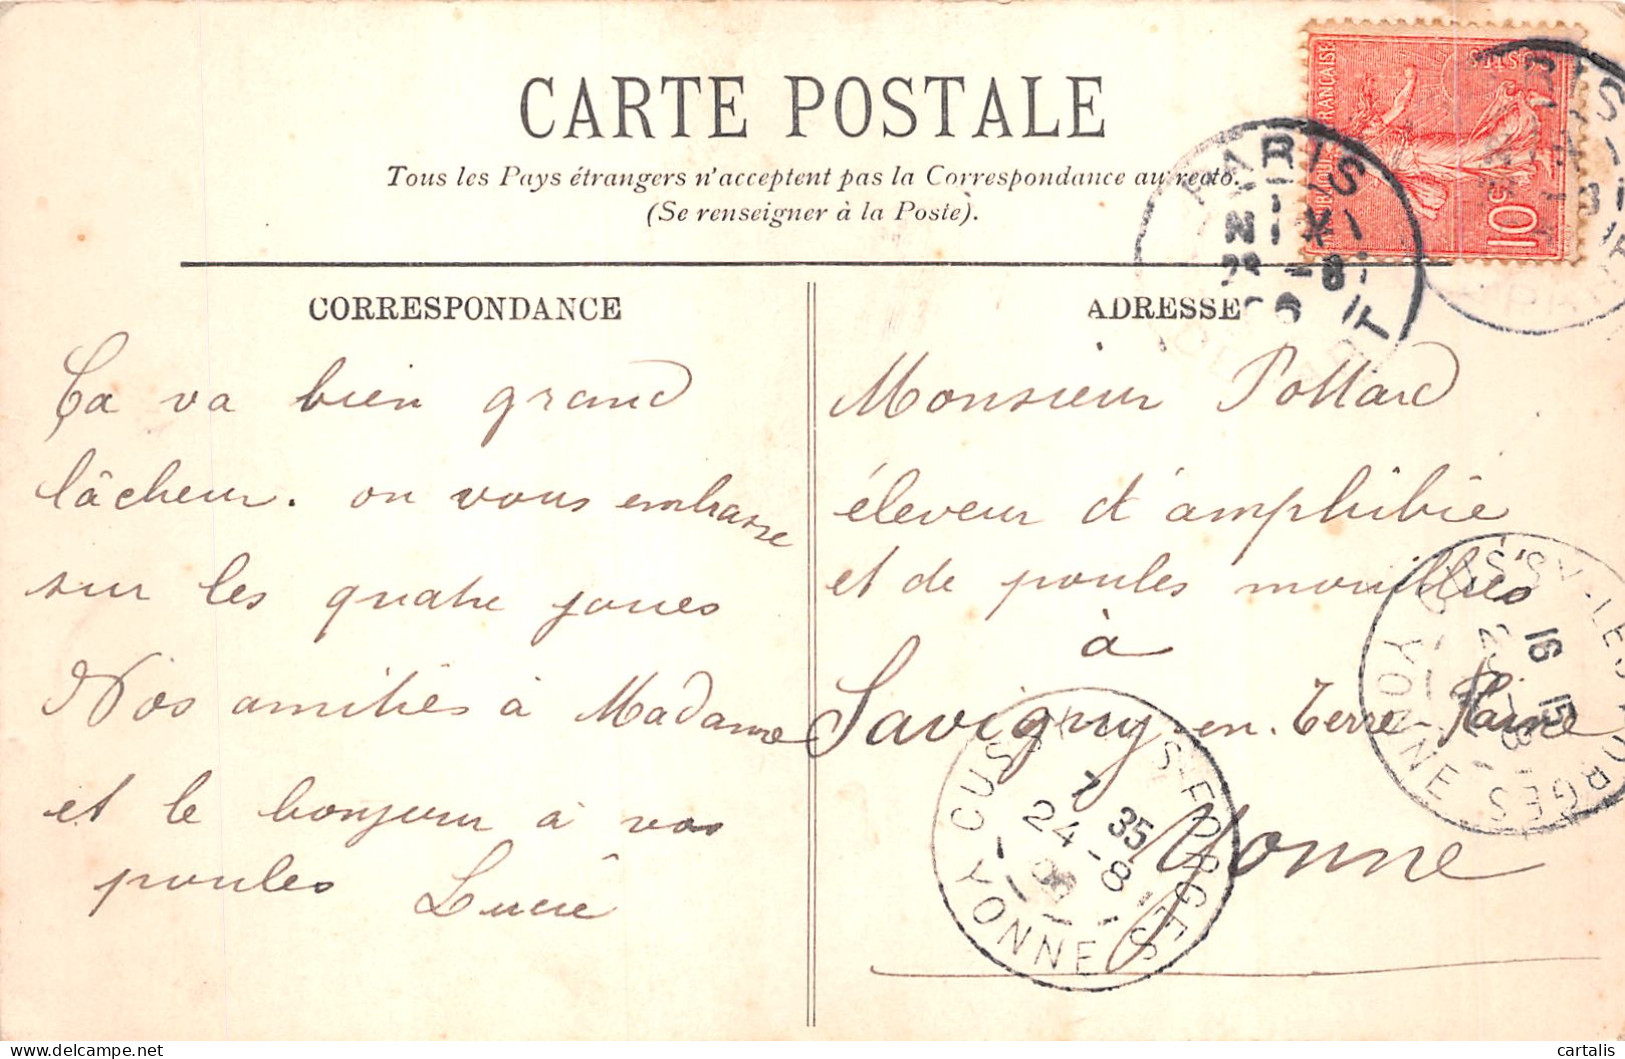 CARTE POSTALE
Tous les Pays étrangers n'acceptent pas la Correspondance au recto.
(Se renseigner à la Poste).
CORRESPONDANCE
Ça va bien grand
lâcheur. on vous embrasse
sur les quatre joues
Nos amitiés à Madame
et le bonjour à vos
poules Lucie
ADRESSE
Monsieur Pollard
éleveur d'amphibie
et de poules mouillées
à
Savigny-en-Terre-Plaine
Yonne
FRANÇAISE
10c
PARIS
DEPART
CUSSY-LES-FORGES
YONNE
7 35
24-8
CUSSY-LES-FORGES
YONNE
16 15
cartalis